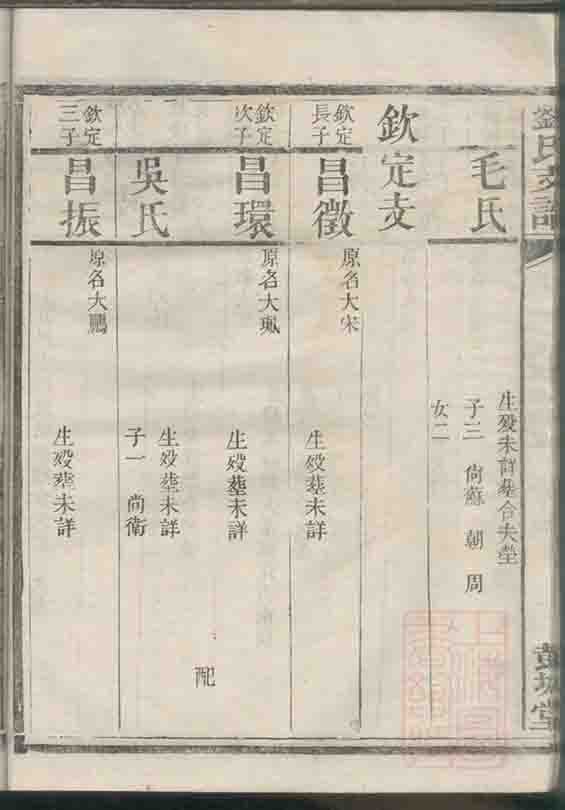 氏支譜
毛氏
生歿未詳塟合夫塋
子三 尙蘇 朝 周
女二
欽定支
欽定長子
昌徵
原名大宋
生歿塟未詳
欽定次子
昌環
原名大鳳
生歿塟未詳
配
吳氏
生歿塟未詳
子一 尙衛
欽定三子
昌振
原名大鵬
生歿塟未詳